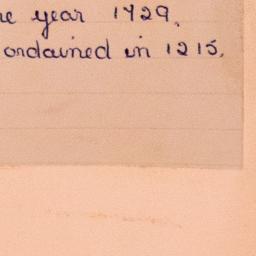 year 1729.
ordained in 1215.